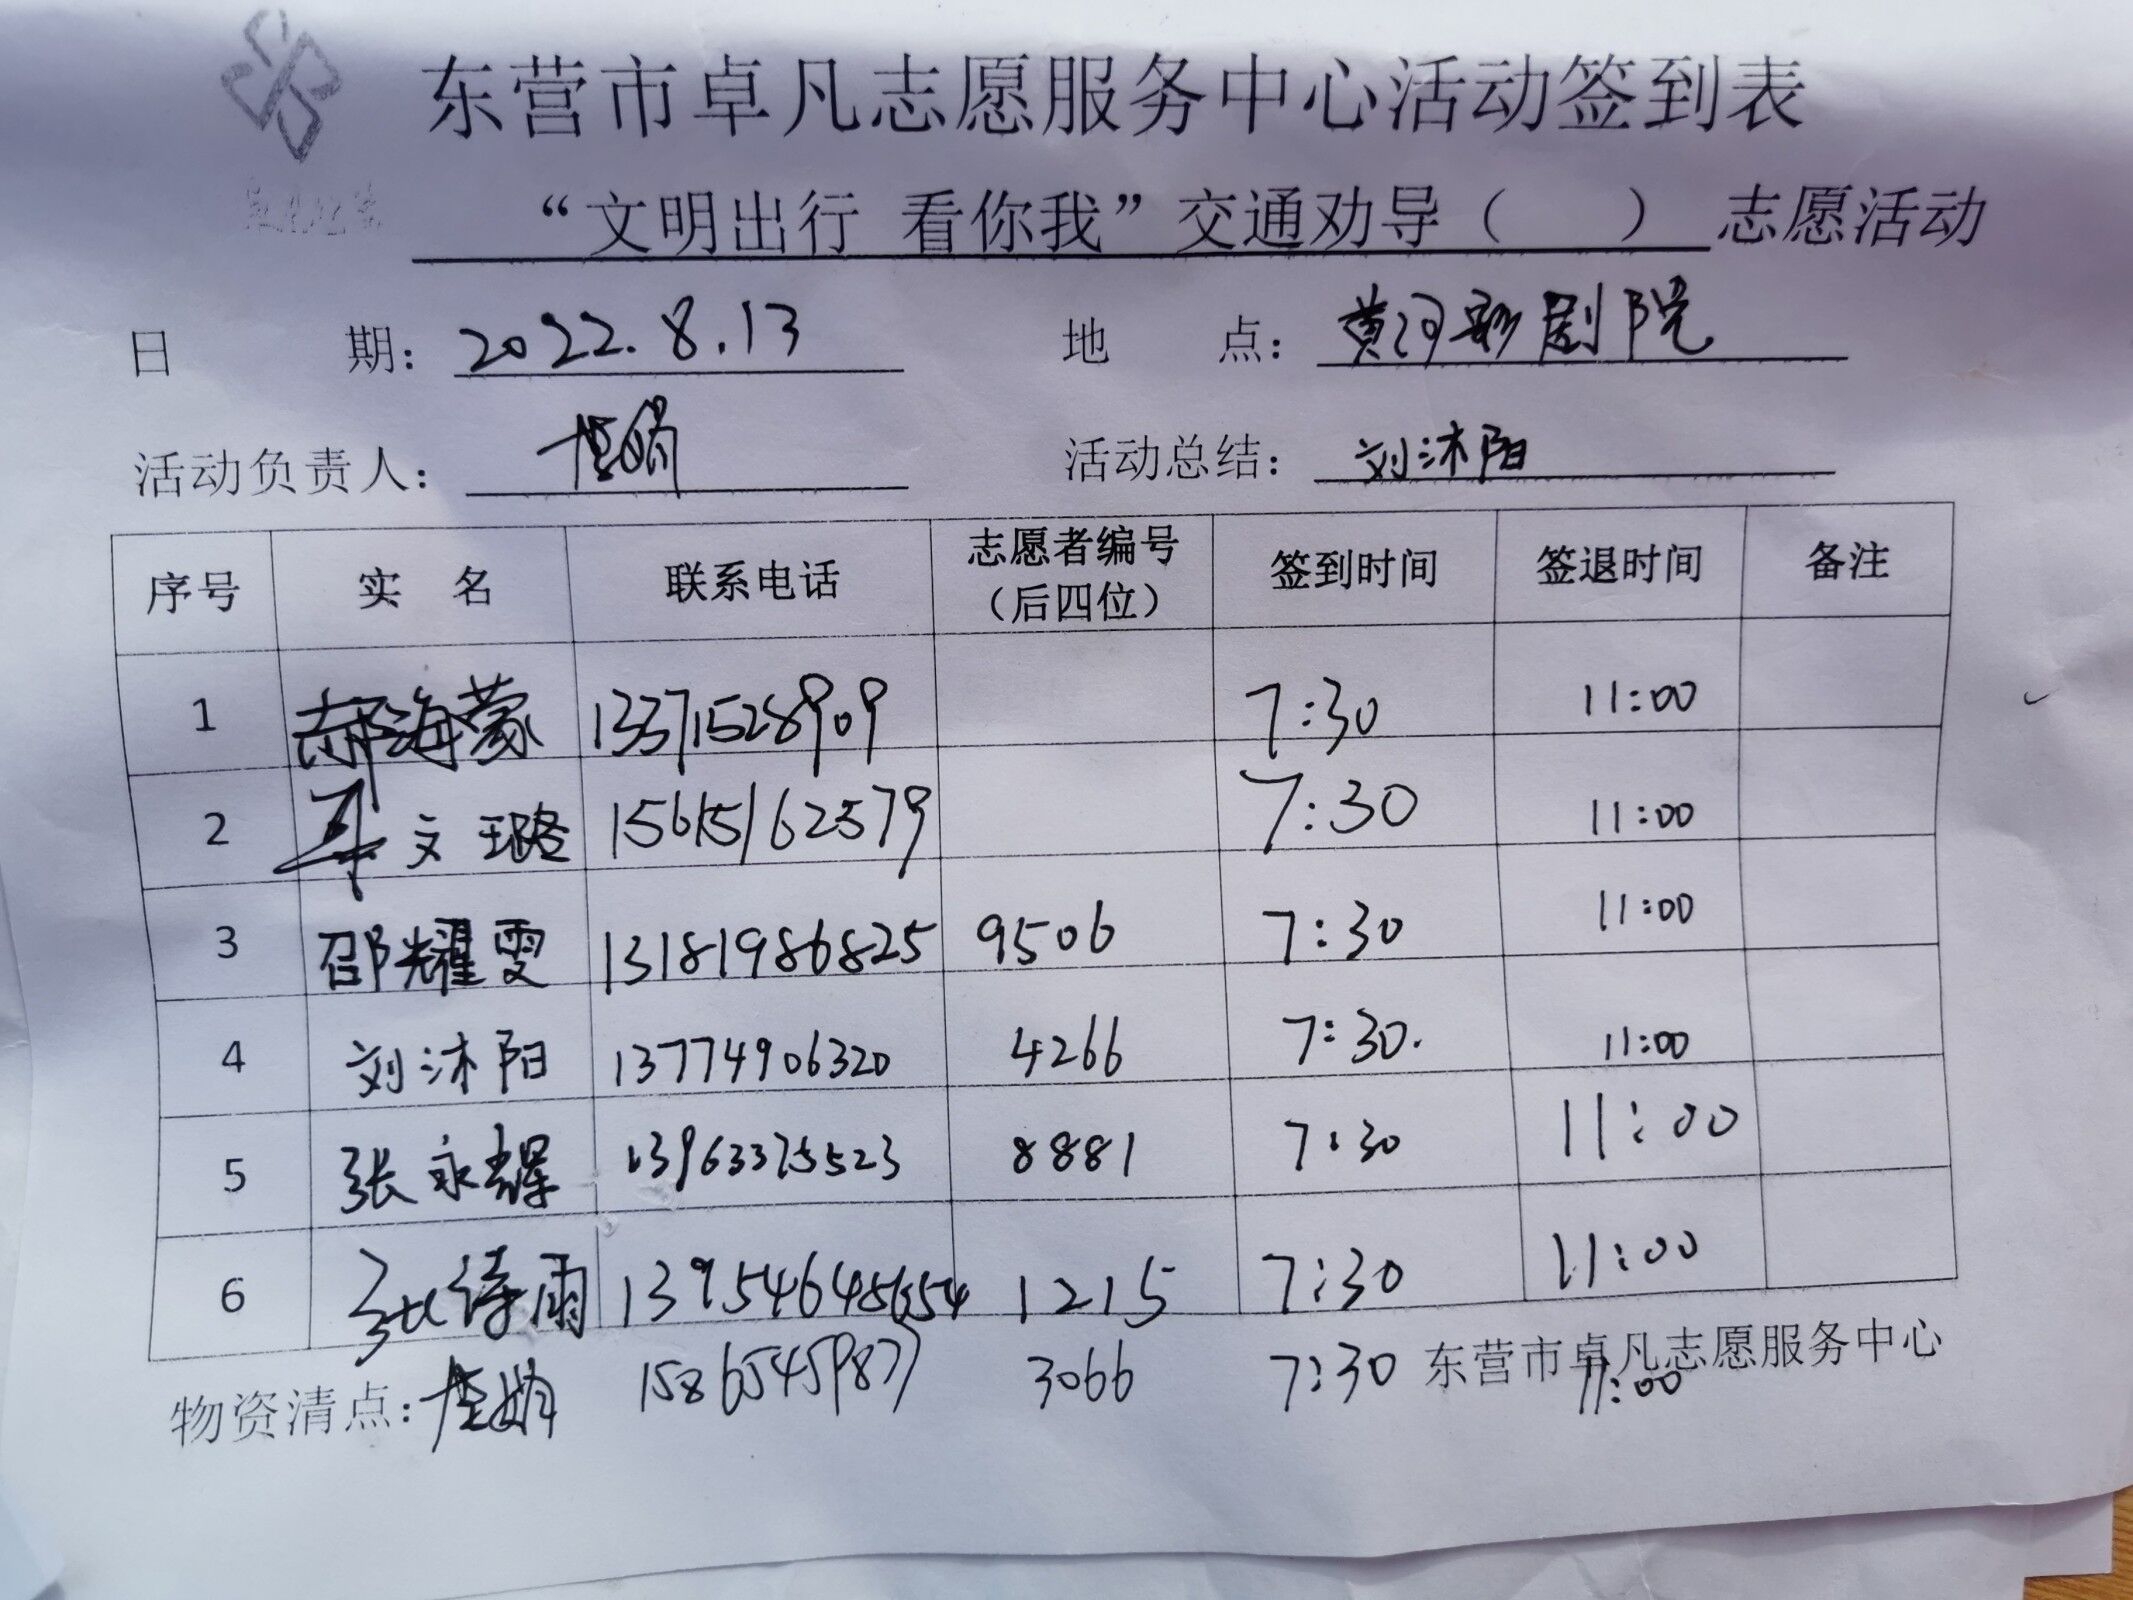 东营市卓凡志愿服务中心活动签到表
“文明出行 看你我”交通劝导（ ）志愿活动
日 期：2022.8.13 地 点：黄河影剧院
活动负责人： 活动总结：刘沐阳
序号 实 名 联系电话 志愿者编号（后四位） 签到时间 签退时间 备注
1 郝海蒙 13371528909 7:30 11:00
2 文璐 15615162579 7:30 11:00
3 邵耀雯 13181986825 9506 7:30 11:00
4 刘沐阳 13774906320 4266 7:30. 11:00
5 张永耀 13963375523 8881 7:30 11:00
6 诗雨 1215 7:30 11:00
东营市卓凡志愿服务中心
物资清点： 15865459877 3066 7:30 11:00